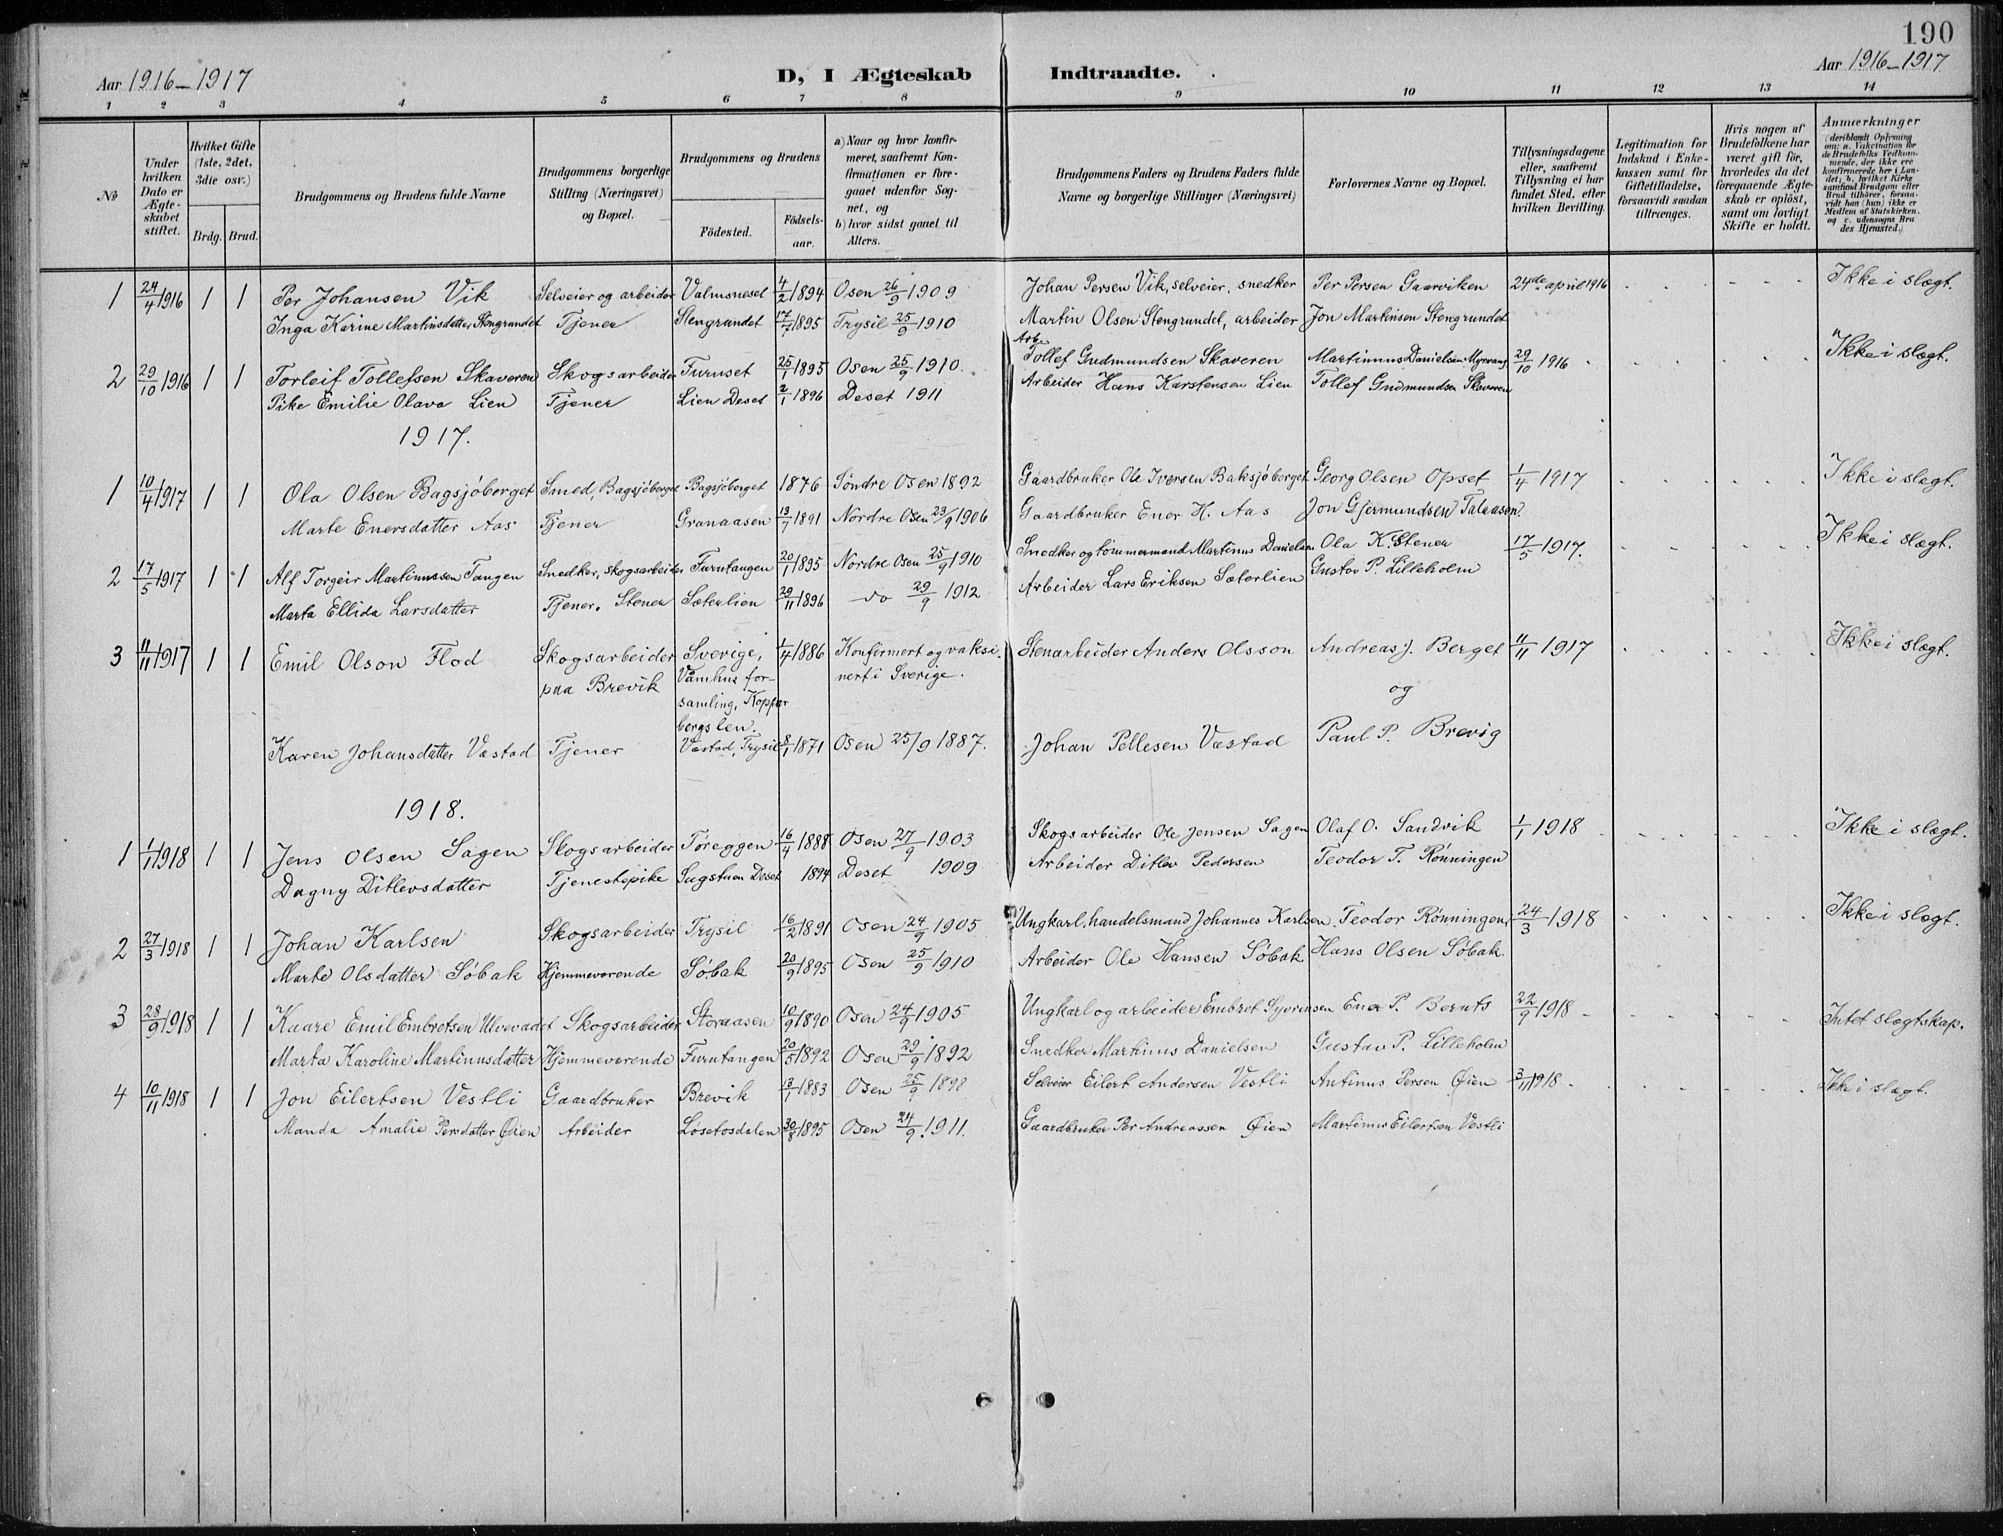 190
Aar 1916-1917
D, I Ægteskab Indtraadte.
Aar 1916-1917
1 2 3 4 5 6 7 8 9 10 11 12 13 14
No
Under hvilken Dato er Ægteskabet stiftet.
Hvilket Gifte (1ste, 2det, 3die osv.)
Brdg. Brud.
Brudgommens og Brudens fulde Navne
Brudgommens borgerlige Stilling (Næringsvei) og Bopæl.
Brudgommens og Brudens
Födested.
Födselsaar.
a) Naar og hvor konfirmeret, saafremt Konfirmationen er foregaaet udenfor Sognet, og
b) hvor sidst gaaet til Alters.
Brudgommens Faders og Brudens Faders fulde Navne og borgerlige Stillinger (Næringsvei)
Forlovernes Navne og Bopæl.
Tillysningsdagene eller, saafremt Tillysning ei har fundet Sted, efter hvilken Bevilling.
Legitimation for Indskud i Enkekassen samt for Giftetilladelse, forsaavidt saadan tiltrænges.
Hvis nogen af Brudefolkene har været gift för, hvorledes da det foregaaende Ægteskab er oplöst, samt om lovligt Skifte er holdt.
Anmærkninger
(deriblandt Oplysning om: a. Vakcination for de Brudefolks Vedkommende, der ikke ere konfirmerede her i Landet; b. hvilket Kirkesamfund Brudgom eller Brud tilhörer, forsaavidt han (hun) ikke er Medlem af Statskirken, og c. udensogns Brudes Hjemsted.)
1 24/4 1916 1 1 Per Johansen Vik Selveier og arbeider Valmsneset 4/2 1894 Osen 26/9 1909 Johan Persen Vik, selveier, snedker Per Persen Gaarviken 24de april 1916 Ikke i slægt.
Inga Karine Martinsdatter Stengrundet Tjener Stengrundet 17/7 1895 Trysil 25/9 1910 Martin Olsen Stengrundet, arbeider Jon Martinsen Stengrundet
2 29/10 1916 1 1 Torleif Tollefsen Skaveren Skogsarbeider Furuset 25/1 1895 Osen 25/9 1910. Arb. Tollef Gudmundsen Skaveren Martinnus Danielsen Myrvang 29/10 1916 Ikke i slægt.
Pike Emilie Olava Lien Tjener Lien Deset 2/1 1896 Deset 1911 Arbeider Hans Karstensen Lien Tollef Gudmundsen Skaveren
1917.
1 10/4 1917 1 1 Ola Olsen Bagsjöberget Smed, Bagsjöberget Bagsjöberget 1876 Söndre Osen 1892 Gaardbruker Ole Iversen Baksjöberget Georg Olsen Opset 1/4 1917 Ikke i slægt.
Marte Enersdatter Aas Tjener Granaasen 13/7 1891 Nordre Osen 23/9 1906 Gaardbruker Ener H. Aas Jon Gjermundsen Talaasen.
2 17/5 1917 1 1 Alf Torgeir Martinussen Tangen Snedker, skogsarbeider Furutangen 20/1 1895 Nordre Osen 25/9 1910 Snedker og tömmermand Martinus Danielsen Ola K. Stener 17/5 1917. Ikke i slægt.
Marta Ellida Larsdatter Tjener. Stener Sæterlien 29/11 1896 do 29/9 1912 Arbeider Lars Eriksen Sæterlien Gustav P. Lilleholm
3 11/11 1917 1 1 Emil Olson Flod Skogsarbeider Sverige, 1/4 1886 Konfirmert og vaksi- Stenarbeider Anders Olsson Andreas J. Berget 11/11 1917 Ikke i slægt.
paa Brevik Våmhus for- nert i Sverige. og
samling, Kopper
bergs len.
Karen Johansdatter Væstad Tjener Væstad, Trysil 8/1 1871 Osen 25/9 1887. Johan Pellesen Væstad Paul P. Brevig
1918.
1 1/1 1918 1 1 Jens Olsen Sagen Skogsarbeider Töreggen 16/4 1888 Osen 27/9 1903 Skogsarbeider Ole Jensen Sagen Olaf O. Sandvik 1/1 1918 Ikke i slægt.
Dagny Ditlevsdatter Tjenestepike Sugstuen Deset 1894 Deset 1909 Arbeider Ditlev Pedersen Teodor T. Rönningen
2 27/3 1918 1 1 Johan Karlsen Skogsarbeider Trysil 16/2 1891 Osen 24/9 1905 Ungkarl, handelsmand Johannes Karlsen Teodor Rönningen 24/3 1918 Ikke i slægt.
Marte Olsdatter Söbak Hjemmeværende Söbak 20/9 1895 Osen 25/9 1910 Arbeider Ole Hansen Söbak Hans Olsen Söbak
3 28/9 1918 1 1 Kaare Emil Embretsen Ulvevadet Skogsarbeider Storaasen 10/9 1890 Osen 24/9 1905 Ungkarl og arbeider Embret Syversen Ener P. Bernts 22/9 1918 Intet slægtskap.
Marta Karoline Martinusdatter Hjemmeværende Furutangen 20/5 1892 Osen 29/9 1892 Snedker Martinus Danielsen Gustav P. Lilleholm
4 10/11 1918 1 1 Jon Eilertsen Vestli Gaardbruker Brevik 13/1 1883 Osen 25/9 1898 Selveier Eilert Andersen Vestli Antinus Persen Øien 3/11 1918 Ikke i slægt.
Manda Amalie Persdatter Øien Arbeider Lösetosdalen 30/8 1895 Osen 24/9 1911. Gaardbruker Per Andreassen Øien Martinus Eilertsen Vestli